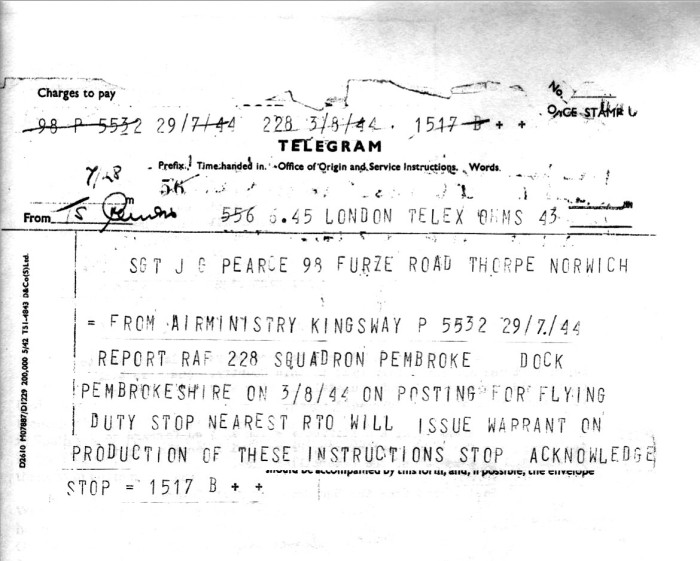 Charges to pay
No.
98 P 5532 29/7/44 228 3/8/44 . 1517 B + +
TELEGRAM
Prefix. Time handed in. Office of Origin and Service Instructions. Words.
7/28
56
From TS
556 6.45 LONDON TELEX OHMS 43
SGT J G PEARCE 98 FURZE ROAD THORPE NORWICH
= FROM AIRMINISTRY KINGSWAY P 5532 29/7/44
REPORT RAF 228 SQUADRON PEMBROKE DOCK
PEMBROKESHIRE ON 3/8/44 ON POSTING FOR FLYING
DUTY STOP NEAREST RTO WILL ISSUE WARRANT ON
PRODUCTION OF THESE INSTRUCTIONS STOP ACKNOWLEDGE
should be accompanied by this form, and, if possible, the envelope
STOP = 1517 B + +